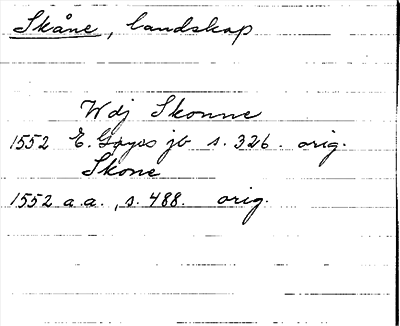 Skåne, landskap
Wdj Skonne
1552 E. Gøyes jb s. 326. orig.
Skone
1552 a.a., s. 488. orig.